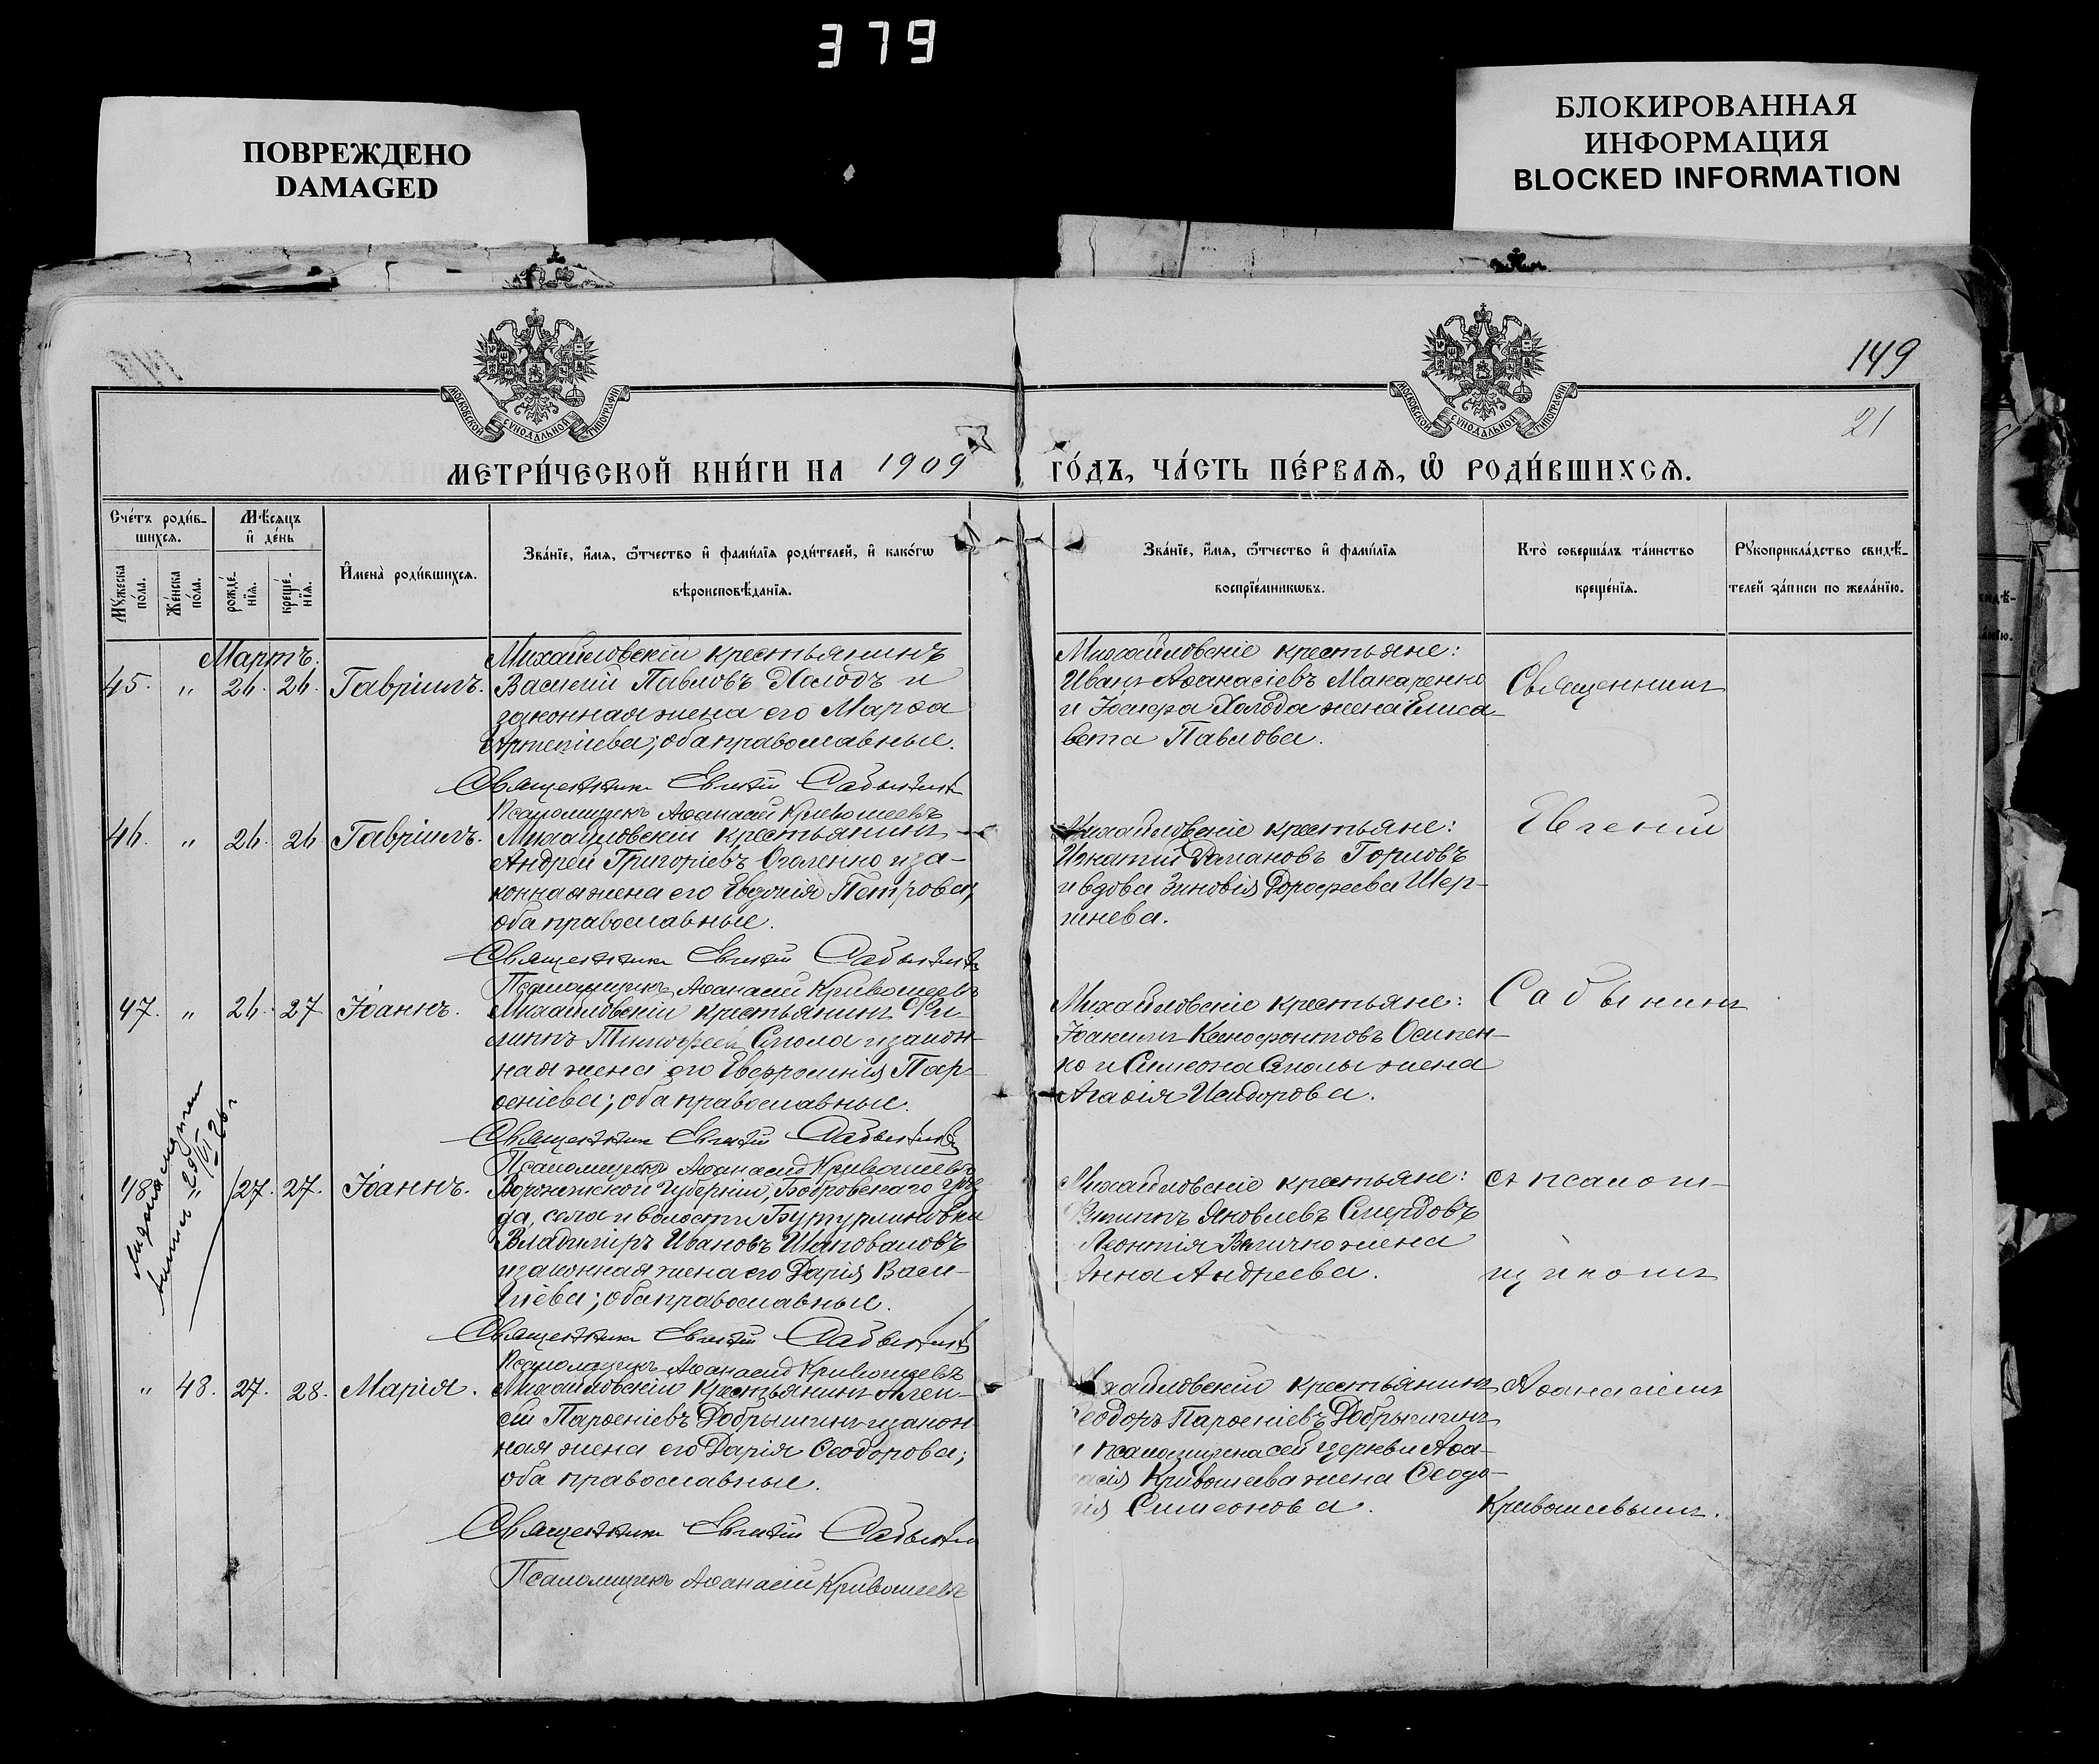 379
ПОВРЕЖДЕНО
DAMAGED
БЛОКИРОВАННАЯ
ИНФОРМАЦИЯ
BLOCKED INFORMATION
149
21
МОСКОВСКОЙ СУНОДАЛЬНОЙ ТИПОГРАФІИ
МОСКОВСКОЙ СУНОДАЛЬНОЙ ТИПОГРАФІИ
МЕТРИ́ЧЕСКОЙ КНИ́ГИ НА 1909 ГО́ДЪ, ЧА́СТЬ ПЕ́РВАѦ, Ѡ҆ РОДИ́ВШИХСѦ.
Сче́тъ роди́в-
шихсѧ.
Мѣ́сѧцъ
и҆ де́нь
Мꙋ́жеска
по́ла.
Же́нска
по́ла.
рожде́-
нїѧ.
креще́-
нїѧ.
И҆мена̀ роди́вшихсѧ.
Зва́нїе, и҆́мѧ, ѻ҆́тчество и҆ фами́лїѧ роди́телей, и҆ како́гѡ
вѣроисповѣ́данїѧ.
Зва́нїе, и҆́мѧ, ѻ҆́тчество и҆ фами́лїѧ
воспрїе́мникѡвъ.
Кто̀ соверша́лъ та́инство
креще́нїѧ.
Рꙋкоприкла́дство свидѣ́-
телей за́писи по жела́нїю.
Мартъ.
45. " 26. 26. Гавріилъ.
Михайловскій крестьянинъ
Василій Павловъ Холодъ и
законная жена его Марѳа
Артеміева; оба православные.
Священникъ Евгеній Сабынинъ
Псаломщикъ Аѳанасій Кривошеевъ
Михайловскіе крестьяне:
Иванъ Аѳанасіевъ Макаренко
и Іосифа Холода жена Елиса-
вета Павлова.
Священникъ
46. " 26. 26 Гавріилъ.
Михайловскій крестьянинъ
Андрей Григоріевъ Оголенко и за-
конная жена его Евдокія Петрова,
оба православные.
Священникъ Евгеній Сабынинъ
Псаломщикъ Аѳанасій Кривошеевъ
Михайловскіе крестьяне:
Игнатій Романовъ Горловъ
и вдова Зиновія Дороѳеева Шер-
шнева.
Евгеній
47. " 26. 27 Іоаннъ.
Михайловскій крестьянинъ Фи-
липпъ Тимоѳеевъ Смола и закон-
ная жена его Евфросинія Пар-
ѳеніева; оба православные.
Священникъ Евгеній Сабынинъ
Псаломщикъ Аѳанасій Кривошеевъ
Михайловскіе крестьяне:
Іоакимъ Ксенофонтовъ Осипен-
ко и Симеона Смолы жена
Агаѳія Исидорова.
Сабынинъ
48 " 27. 27. Іоаннъ.
29/VI 26 г
Воронежской губерніи, Бобровскаго уѣз-
да, села и волости Бутурлиновки
Владимиръ Ивановъ Шаповаловъ
и законная жена его Дарія Васи-
ліева; оба православные.
Священникъ Евгеній Сабынинъ
Псаломщикъ Аѳанасій Кривошеевъ
Михайловскіе крестьяне:
Филиппъ Яковлевъ Смердовъ
Леонтія Величко жена
Анна Андреева.
съ псалом-
щикомъ
" 48. 27. 28. Марія.
Михайловскій крестьянинъ Алек-
сѣй Парѳеніевъ Добрынинъ и закон-
ная жена его Дарія Ѳеодорова;
оба православные.
Священникъ Евгеній Сабынинъ
Псаломщикъ Аѳанасій Кривошеевъ
хайловскій крестьянинъ
Ѳеодоръ Парѳеніевъ Добрынинъ
и псаломщика сей церкви Аѳа-
насія Кривошеева жена Ѳеодо-
рія Симеонова.
Аѳанасіемъ
Кривошеевымъ.